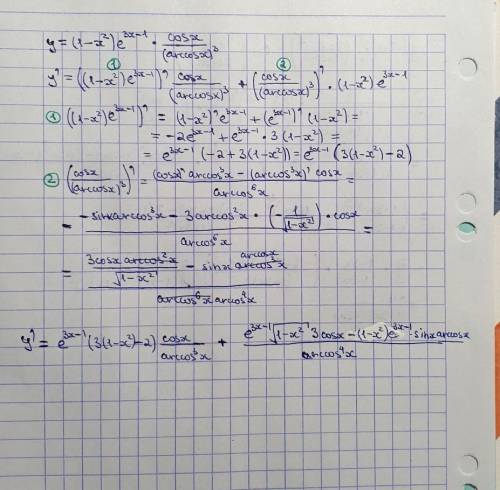 y = (1-x²) e^{3x-1} · cosx/(arccosx)³
① ②
y' = ((1-x²)e^{3x-1})' cosx/(arccosx)³ + (cosx/(arccosx)³)' · (1-x²) e^{3x-1}
① ((1-x²)e^{3x-1})' = (1-x²)' e^{3x-1} + (e^{3x-1})' (1-x²) =
= -2e^{3x-1} + e^{3x-1} · 3(1-x²) =
= e^{3x-1} (-2+3(1-x²)) = e^{3x-1} (3(1-x²)-2)
② (cosx/(arccosx)³)' = ((cosx)' arccos³x - (arccos³x)' cosx)/arccos⁶x =
= (-sinxarccos³x - 3arccos²x · (-1/√(1-x²)) · cosx)/arccos⁶x =
= (3cosx arccos²x/√(1-x²) - sinx arccos³x arccosx)/(arccos⁶x arccos⁴x)
y' = e^{3x-1} (3(1-x²)-2) cosx/arccos³x + (e^{3x-1} √(1-x²) 3cosx - (1-x²)e^{3x-1} · sinxarccosx)/arccos⁴x